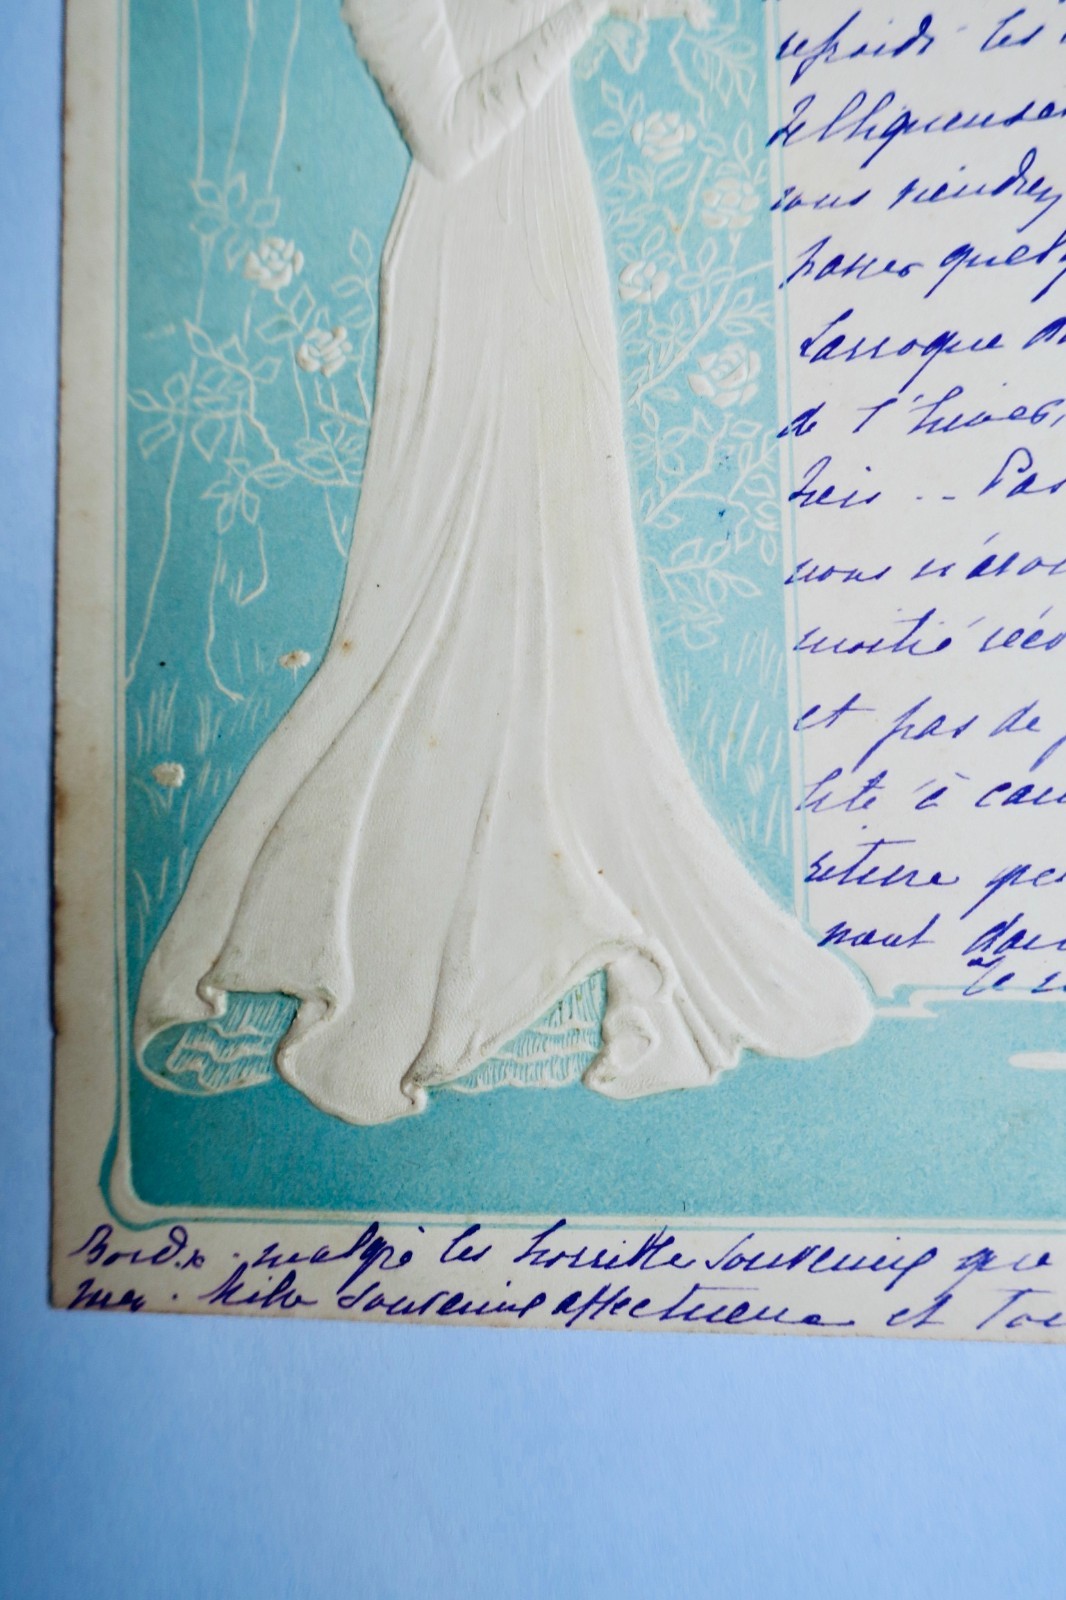 refroidi les
belliqueuses
vous viendrez
passer quelq
Larroque
de l'hiver,
bien .. Pas
nous n'avon
moitié réco
et pas de
lité à cau
riture
vaut dan
le
Bordx. malgré les horrible souvenirs que
souvenirs affectueux et Tou